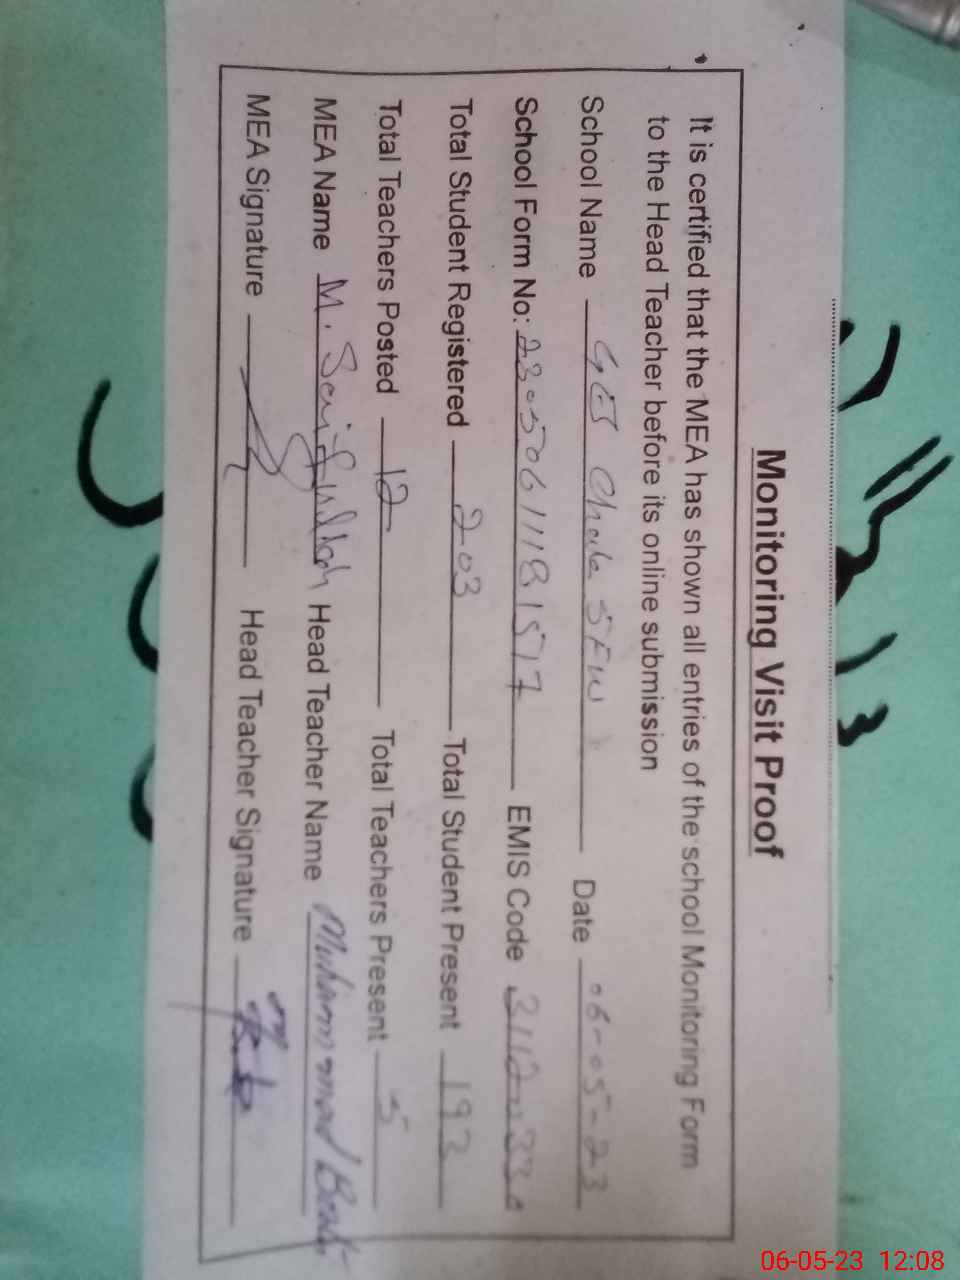 Monitoring Visit Proof
It is certified that the MEA has shown all entries of the school Monitoring Form
to the Head Teacher before its online submission
School Name GES Chak 5FW Date 06-05-23
School Form No: 23050611181517 EMIS Code 31120330
Total Student Registered 203 Total Student Present 193
Total Teachers Posted 12 Total Teachers Present 5
MEA Name M. Saifullah Head Teacher Name Muhammad
MEA Signature Head Teacher Signature
06-05-23 12:08